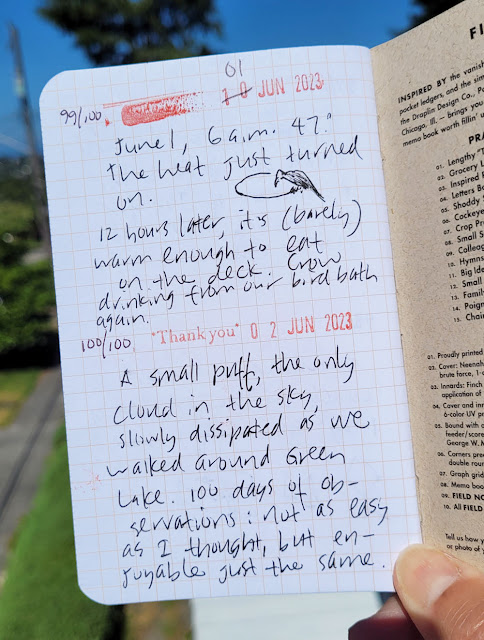 01
99/100, 10 JUN 2023
June 1, 6 a.m. 47.°
The heat just turned
on.
12 hours later, it's (barely)
warm enough to eat
on the deck. Crow
drinking from our bird bath
again.
100/100, "Thank you" 02 JUN 2023
A small puff, the only
cloud in the sky,
slowly dissipated as we
walked around Green
Lake. 100 days of ob-
servations: not as easy
as I thought, but en-
joyable just the same.
FI
INSPIRED BY the vanish
pocket ledgers, and the sim
the Draplin Design Co., Po
Chicago, Ill. — brings you
memo book worth fillin' u
PRA
01. Lengthy "T
02. Grocery L
03. Inspired I
04. Letters Be
05. Shoddy
06. Cockeye
07. Crop Pr
08. Small S
09. Colleag
10. Hymns
11. Big Ide
12. Small
13. Famil
14. Poign
15. Chai
01. Proudly printed
02. Cover: Neenah
brute force, 1-c
03. Innards: Finch
application of
04. Cover and inn
6-color UV pr
05. Bound with a
feeder/score
George W. M
06. Corners prec
double roun
07. Graph grid
08. Memo boo
09. FIELD NO
10. All FIELD
Tell us how y
or photo of y